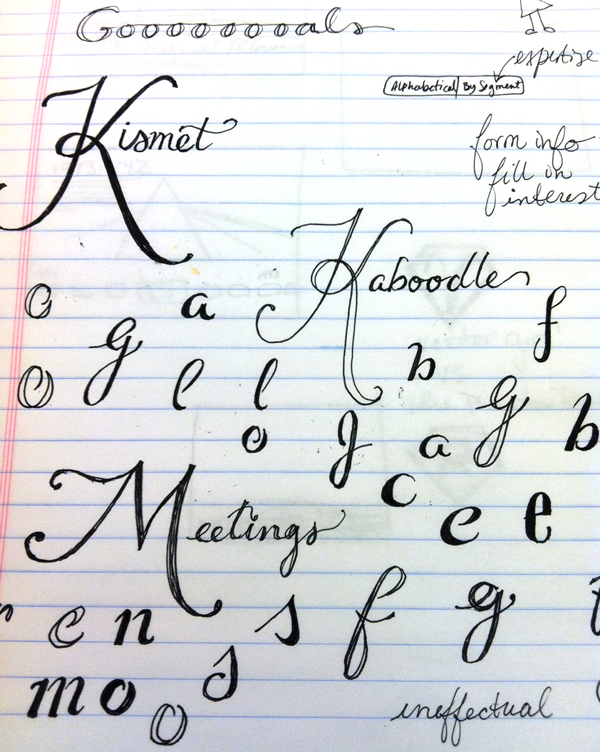 Gooooooooals
expertise
Alphabetical | By Segment
Kismet
form info
fill in
interest
Kaboodle
o a f
g b
O l l g b
o J a
c e e
Meetings
r e n s f g
m o s
O
ineffectual